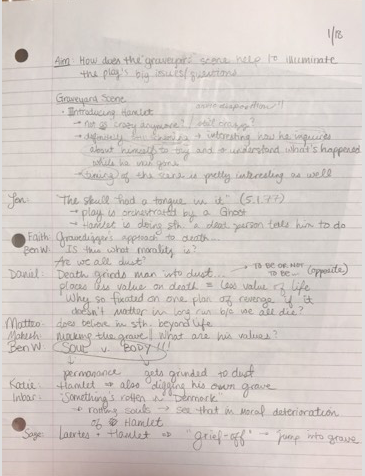 1/18
Aim: How does the graveyard scene help to illuminate
the play's big issues/questions
Graveyard Scene
• Introducing Hamlet
→ not crazy anymore?
→ interesting how he inquires
about himself to try and understand what's happened
while he was gone
→ timing of the scene is pretty interesting as well
Jon: "The skull had a tongue in it" (5.1.77)
→ play is orchestrated by a Ghost
→ Hamlet is doing sth. a dead person tells him to do
Faith: Gravedigger's approach to death...
Ben W: Is this what morality is?
Are we all dust?
Daniel: Death grinds man into dust... → TO BE OR NOT TO BE... (opposite)
places less value on death = less value of life
Why so fixated on one plan of revenge if it
doesn't matter in long run b/c we all die?
Matteo: does believe in sth. beyond life
Makesh: making the grave | What are his values?
Ben W: SOUL v. BODY!!!
permanance gets grinded to dust
Katie: Hamlet → also digging his own grave
Inbar: "Something's rotten in Denmark"
→ rotting souls → see that in moral deterioration
of Hamlet
Sage: Laertes + Hamlet ⇒ "grief-off" → jump into grave